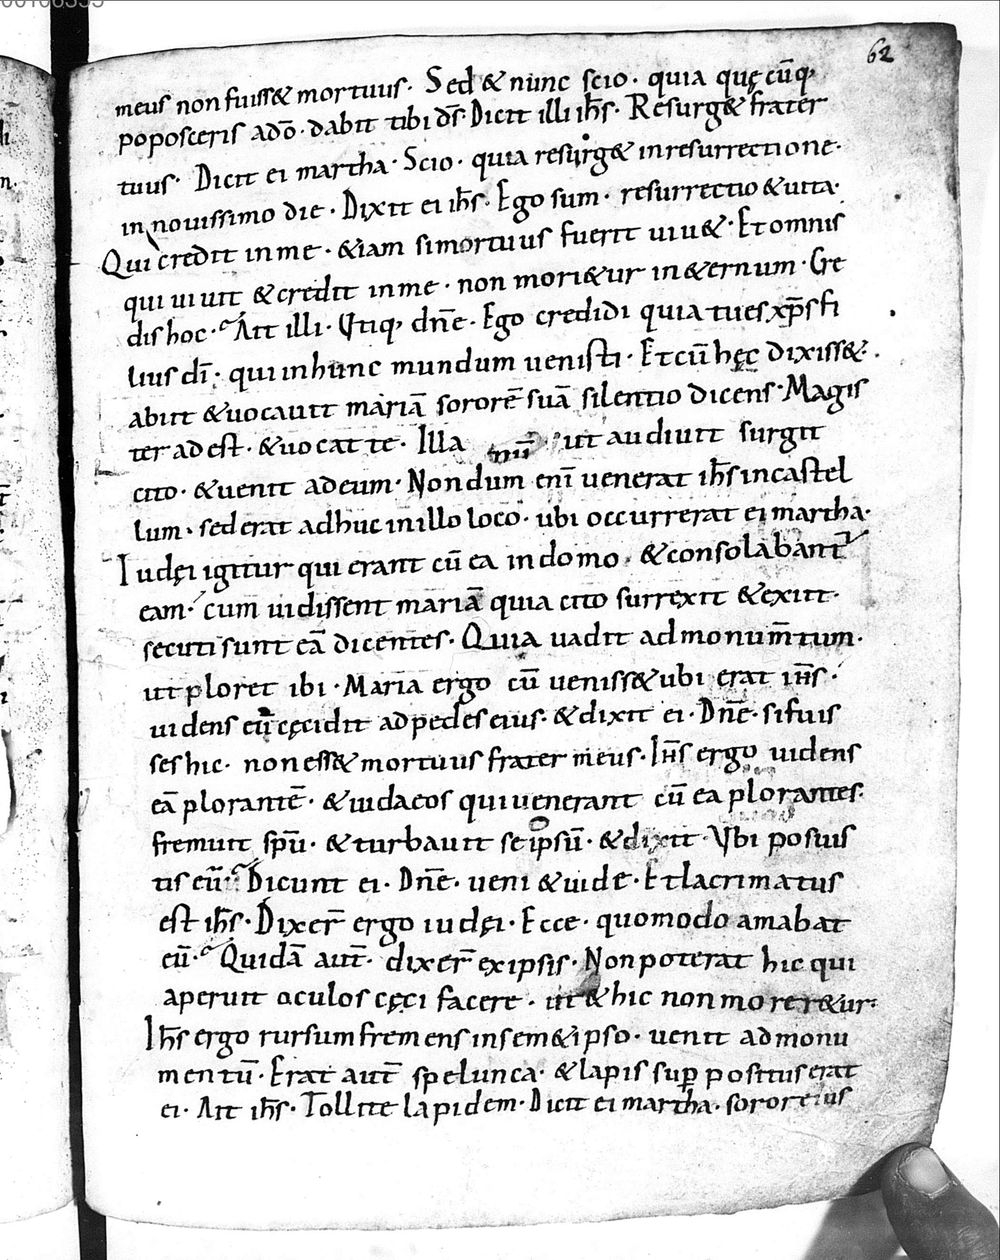 62
meus non fuiss& mortuus. Sed & nunc scio. quia quęcūq;
poposceris adō. dabit tibi dS̄. Dicit illi ih̄s. Resurg& frater
tuus. Dicit ei martha. Scio. quia resurg& inresurrectione.
in nouissimo die. Dixit ei ih̄s. Ego sum. resurrectio & uita.
Qui credit in me. &iam simortuus fuerit uiu&. Et omnis
qui uiuit & credit in me. non mori&ur in &ernum. Cre
dis hoc. Ait illi. Vtiq; dn̄e. Ego credidi quia tu es xp̄s fi
lius dī. qui inhunc mundum uenisti. Et cū hęc dixiss&.
abiit & uocauit mariā sororē suā silentio dicens. Magis
ter adest. & uocat te. Illa ut audiuit surgit
cito. & uenit adeum. Nondum enī uenerat ih̄s incastel
lum. sed erat adhuc inillo loco. ubi occurrerat ei martha.
Iudęi igitur qui erant cū ea indomo. & consolabant̄
eam. cum uidissent mariā quia cito surrexit & exiit.
secuti sunt eā dicentes. Quia uadit ad monum̄tum.
ut ploret ibi. Maria ergo cū ueniss& ubi erat ih̄s.
uidens eū cęcidit ad pedes eius. & dixit ei. Dn̄e. si fuis
ses hic. non ess& mortuus frater meus. Ih̄s ergo uidens
eā plorantē. & iudaeos qui uenerant cū ea plorantes.
fremuit spū. & turbauit se ipsū. & dixit. Vbi posuis
tis eū. Dicunt ei. Dn̄e. ueni & uide. Et lacrimatus
est ih̄s. Dixer̄ ergo iudęi. Ecce. quomodo amabat
eū. Quidā aut̄. dixer̄ exipsis. Non poterat hic qui
aperuit oculos cęci facere. ut & hic non morer&ur.
Ih̄s ergo rursum fremens insem&ipso. uenit ad monu
mentū. Erat aut̄ spelunca. & lapis sup̄ positus erat
ei. Ait ih̄s. Tollite lapidem. Dicit ei martha. soror eius